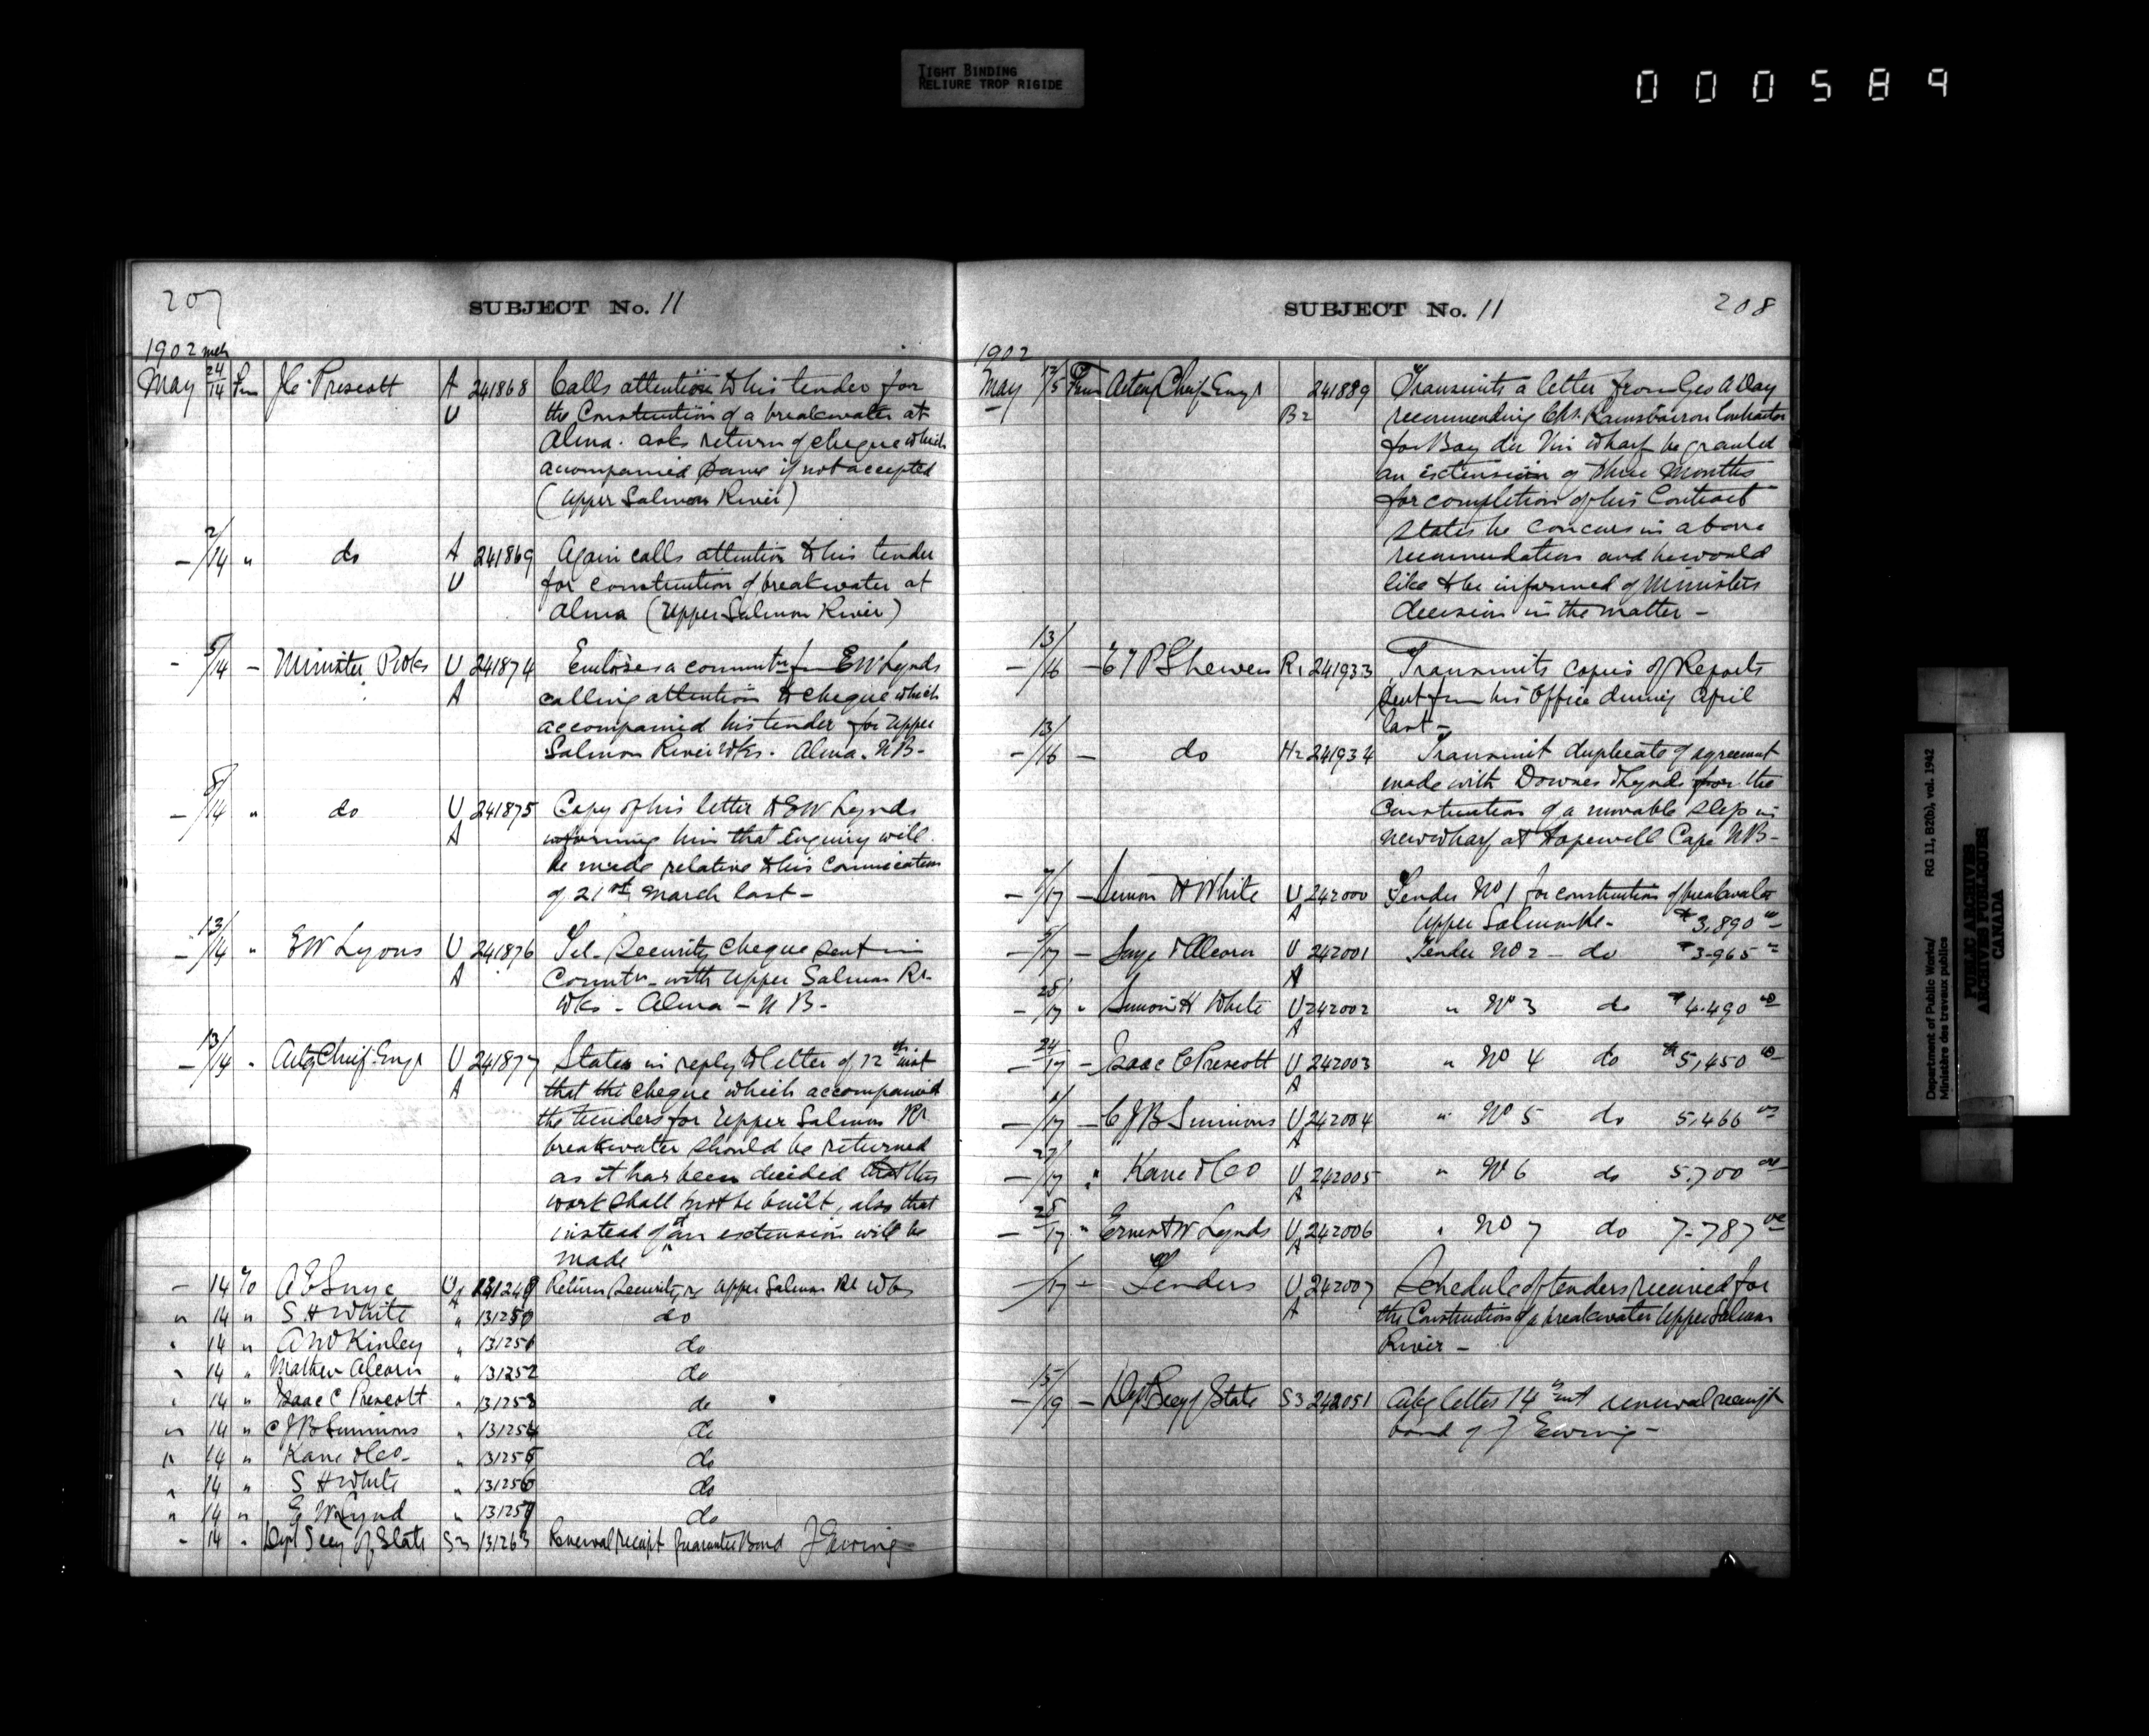 TIGHT BINDING
RELIURE TROP RIGIDE
000589
207
SUBJECT No. 11
1902 mch
May 24/14 Fm J.C. Prescott A 241868 Calls attention to his tender for
U the Construction of a breakwater at
Alma. asks return of cheque which
accompanied same if not accepted
(Upper Salmon River)
- 2/14 " do A 241869 Again calls attention to his tender
U for construction of breakwater at
Alma (Upper Salmon River)
- 5/14 - Minister P Wks U 241874 Encloses a commutn fm EW Lynds
A calling attention to cheque which
accompanied his tender for Upper
Salmon River Wks. Alma. N B-
- 8/14 " do U 241875 Copy of his letter to EW Lynds
A informing him that Enquiry will
be made relative to his Comunication
of 21st March last -
- 13/14 " EW Lyons U 241876 Tel- Security Cheque sent in
A with Upper Salmon Rr
Wks - Alma - N B -
- 13/14 " Actg Chief Engr U 241877 States in reply to letter of 12th inst
A that the cheque which accompanied
the tenders for Upper Salmon Rr
breakwater should be returned
as it has been decided that this
work shall not be built, also that
instead of it an extension will be
made "
- 14 To A E Smye U A 131249 Return Security re Upper Salmon Rr Wks
" 14 " S H White " 131250 do
" 14 " A W Kinley " 131251 do
" 14 " Mathew Alcorn " 131252 do
" 14 " Isaac C Prescott " 131253 do
" 14 " C J B Simmons " 131254 do
" 14 " Kane & Co- " 131255 do
" 14 " S H White " 131256 do
" 14 " E W Lynd " 131257 do
- 14 " Dept Secy of State S3 131263 Renewal receipt Guarantee Bond J Ewing
SUBJECT No. 11
208
1902
May 12/15 From Acting Chief Engr 241889 Transmits a letter from Geo A Day
B2 recommending Chs. Contractor
for Bay du Vin Wharf be granted
an extension of three Months
for completion of his Contract
States he concurs in above
recomendation and he would
like to be informed of Ministers
decision in the matter -
- 13/16 - E T P Shewen R1 241933 Transmits copies of Reports
sent from his Office during April
last -
- 13/16 - do H2 241934 Transmit duplicate of agreement
made with Downes & Lynds for the
Construction of a movable slip in
new wharf at Hopewell Cape N B -
- 7/17 - Simon H White U 242000 Tender No 1 for construction of breakwater
A Upper Salmon Rr - $3,890 00
- 5/17 - Smye & Alcorn U 242001 Tender No 2 - do $3.965 00
A
- 25/17 " Simon H White U 242002 " No 3 do $4.490 00
A
- 24/17 - Isaac C Prescott U 242003 " No 4 do $5,450 00
A
- 1/17 - C J B Simmons U 242004 " No 5 do 5,466 00
A
- 27/17 " Kane & Co U 242005 " No 6 do 5.700 00
A
- 25/17 " Ernest W Lynds U 242006 " No 7 do 7.787 00
A
- /17 - Tenders U 242007 Schedule of tenders received for
A the Construction of a breakwater Upper Salmon
River -
- 15/19 - Dept Secy of State S3 242051 Ackg letter 14th inst renewal receipt
bond of J Ewing -
Department of Public Works/ RG 11, B2(b), vol. 1942
Ministère des travaux publics
PUBLIC ARCHIVES
ARCHIVES PUBLIQUES
CANADA